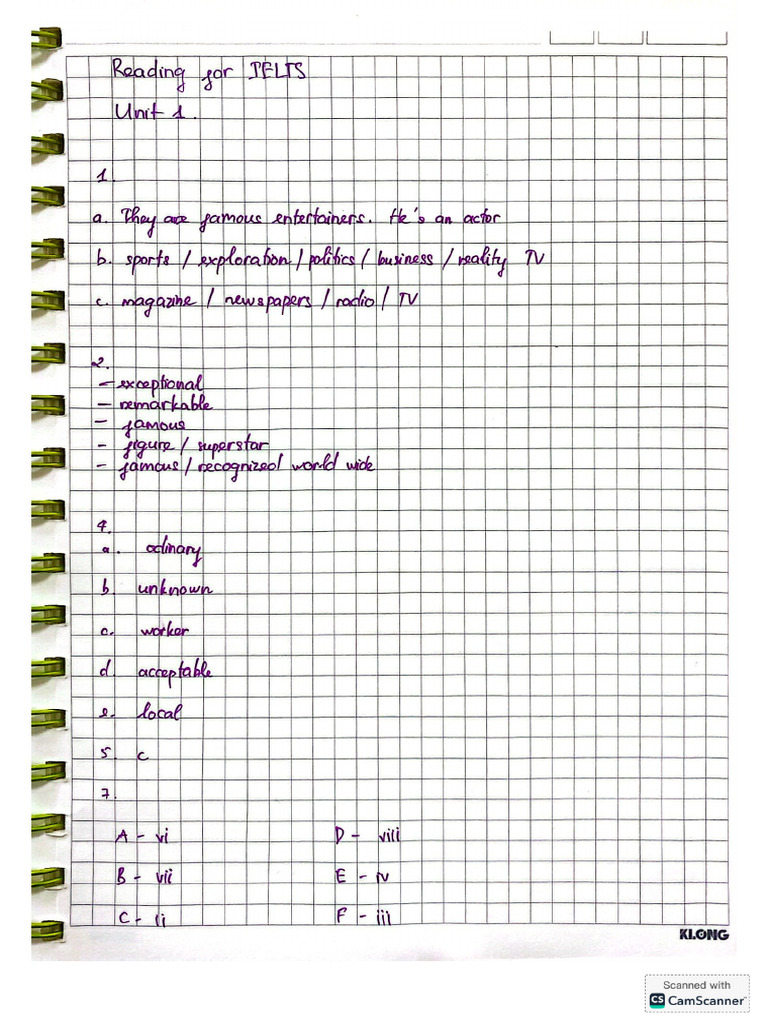 Reading for IELTS
Unit 1.
1.
a. They are famous entertainers. He's an actor
b. sports / exploration / politics / business / reality TV
c. magazine / newspapers / radio / TV
2.
- exceptional
- remarkable
- famous
- figure / superstar
- famous / recognized world wide
4.
a. odinary
b. unknown
c. worker
d. acceptable
e. local
5. c
7.
A - vi D - viii
B - vii E - iv
C - ii F - iii
KLONG
Scanned with
CS CamScanner